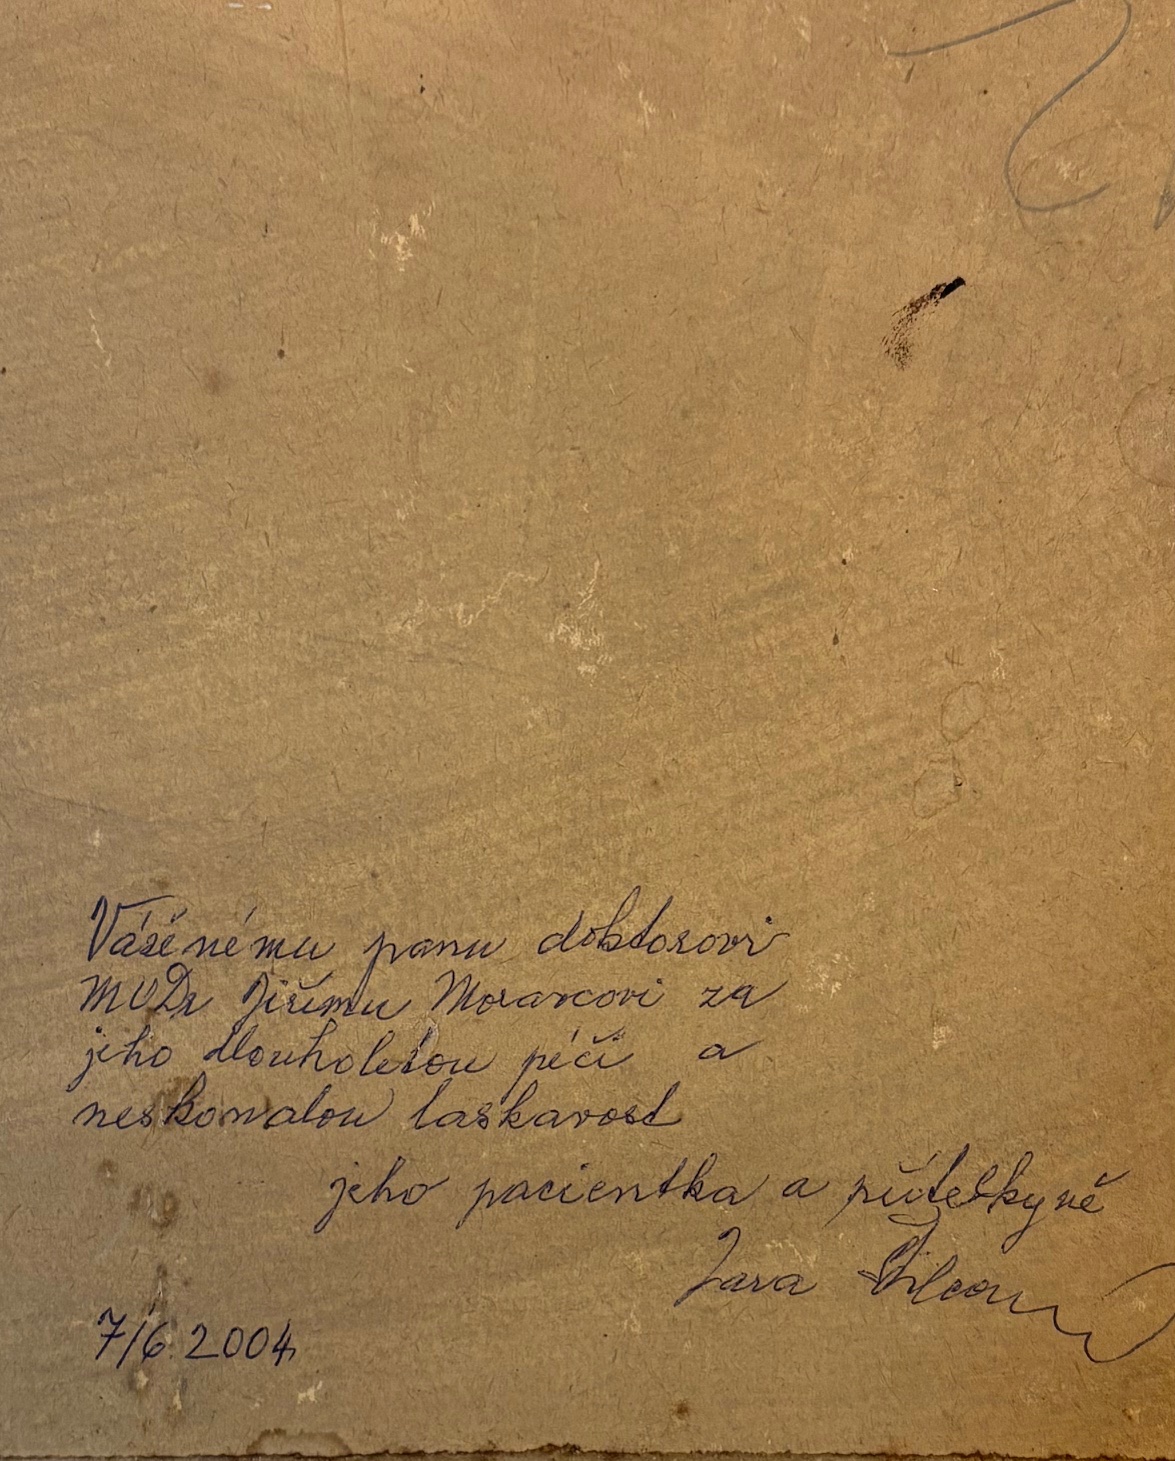 Váženému panu doktorovi
MUDr Jiřímu Moravcovi za
jeho dlouholetou péči a
neskonalou laskavost
jeho pacientka a přítelkyně
Jara
7/6. 2004